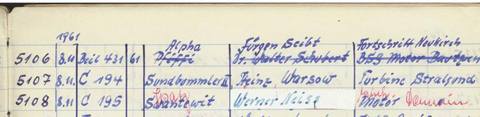 1961
Alpha Jürgen Seibt Fortschritt Neukirch
5106 8.11 Beil 431 61 Pfiffi Dr. Walter Schubert BSG Motor Bautzen
5107 8.11. C 194 Sundbommler II Heinz Warsow Turbine Stralsund
5108 8.11 C 195 Swantewit Werner Motor